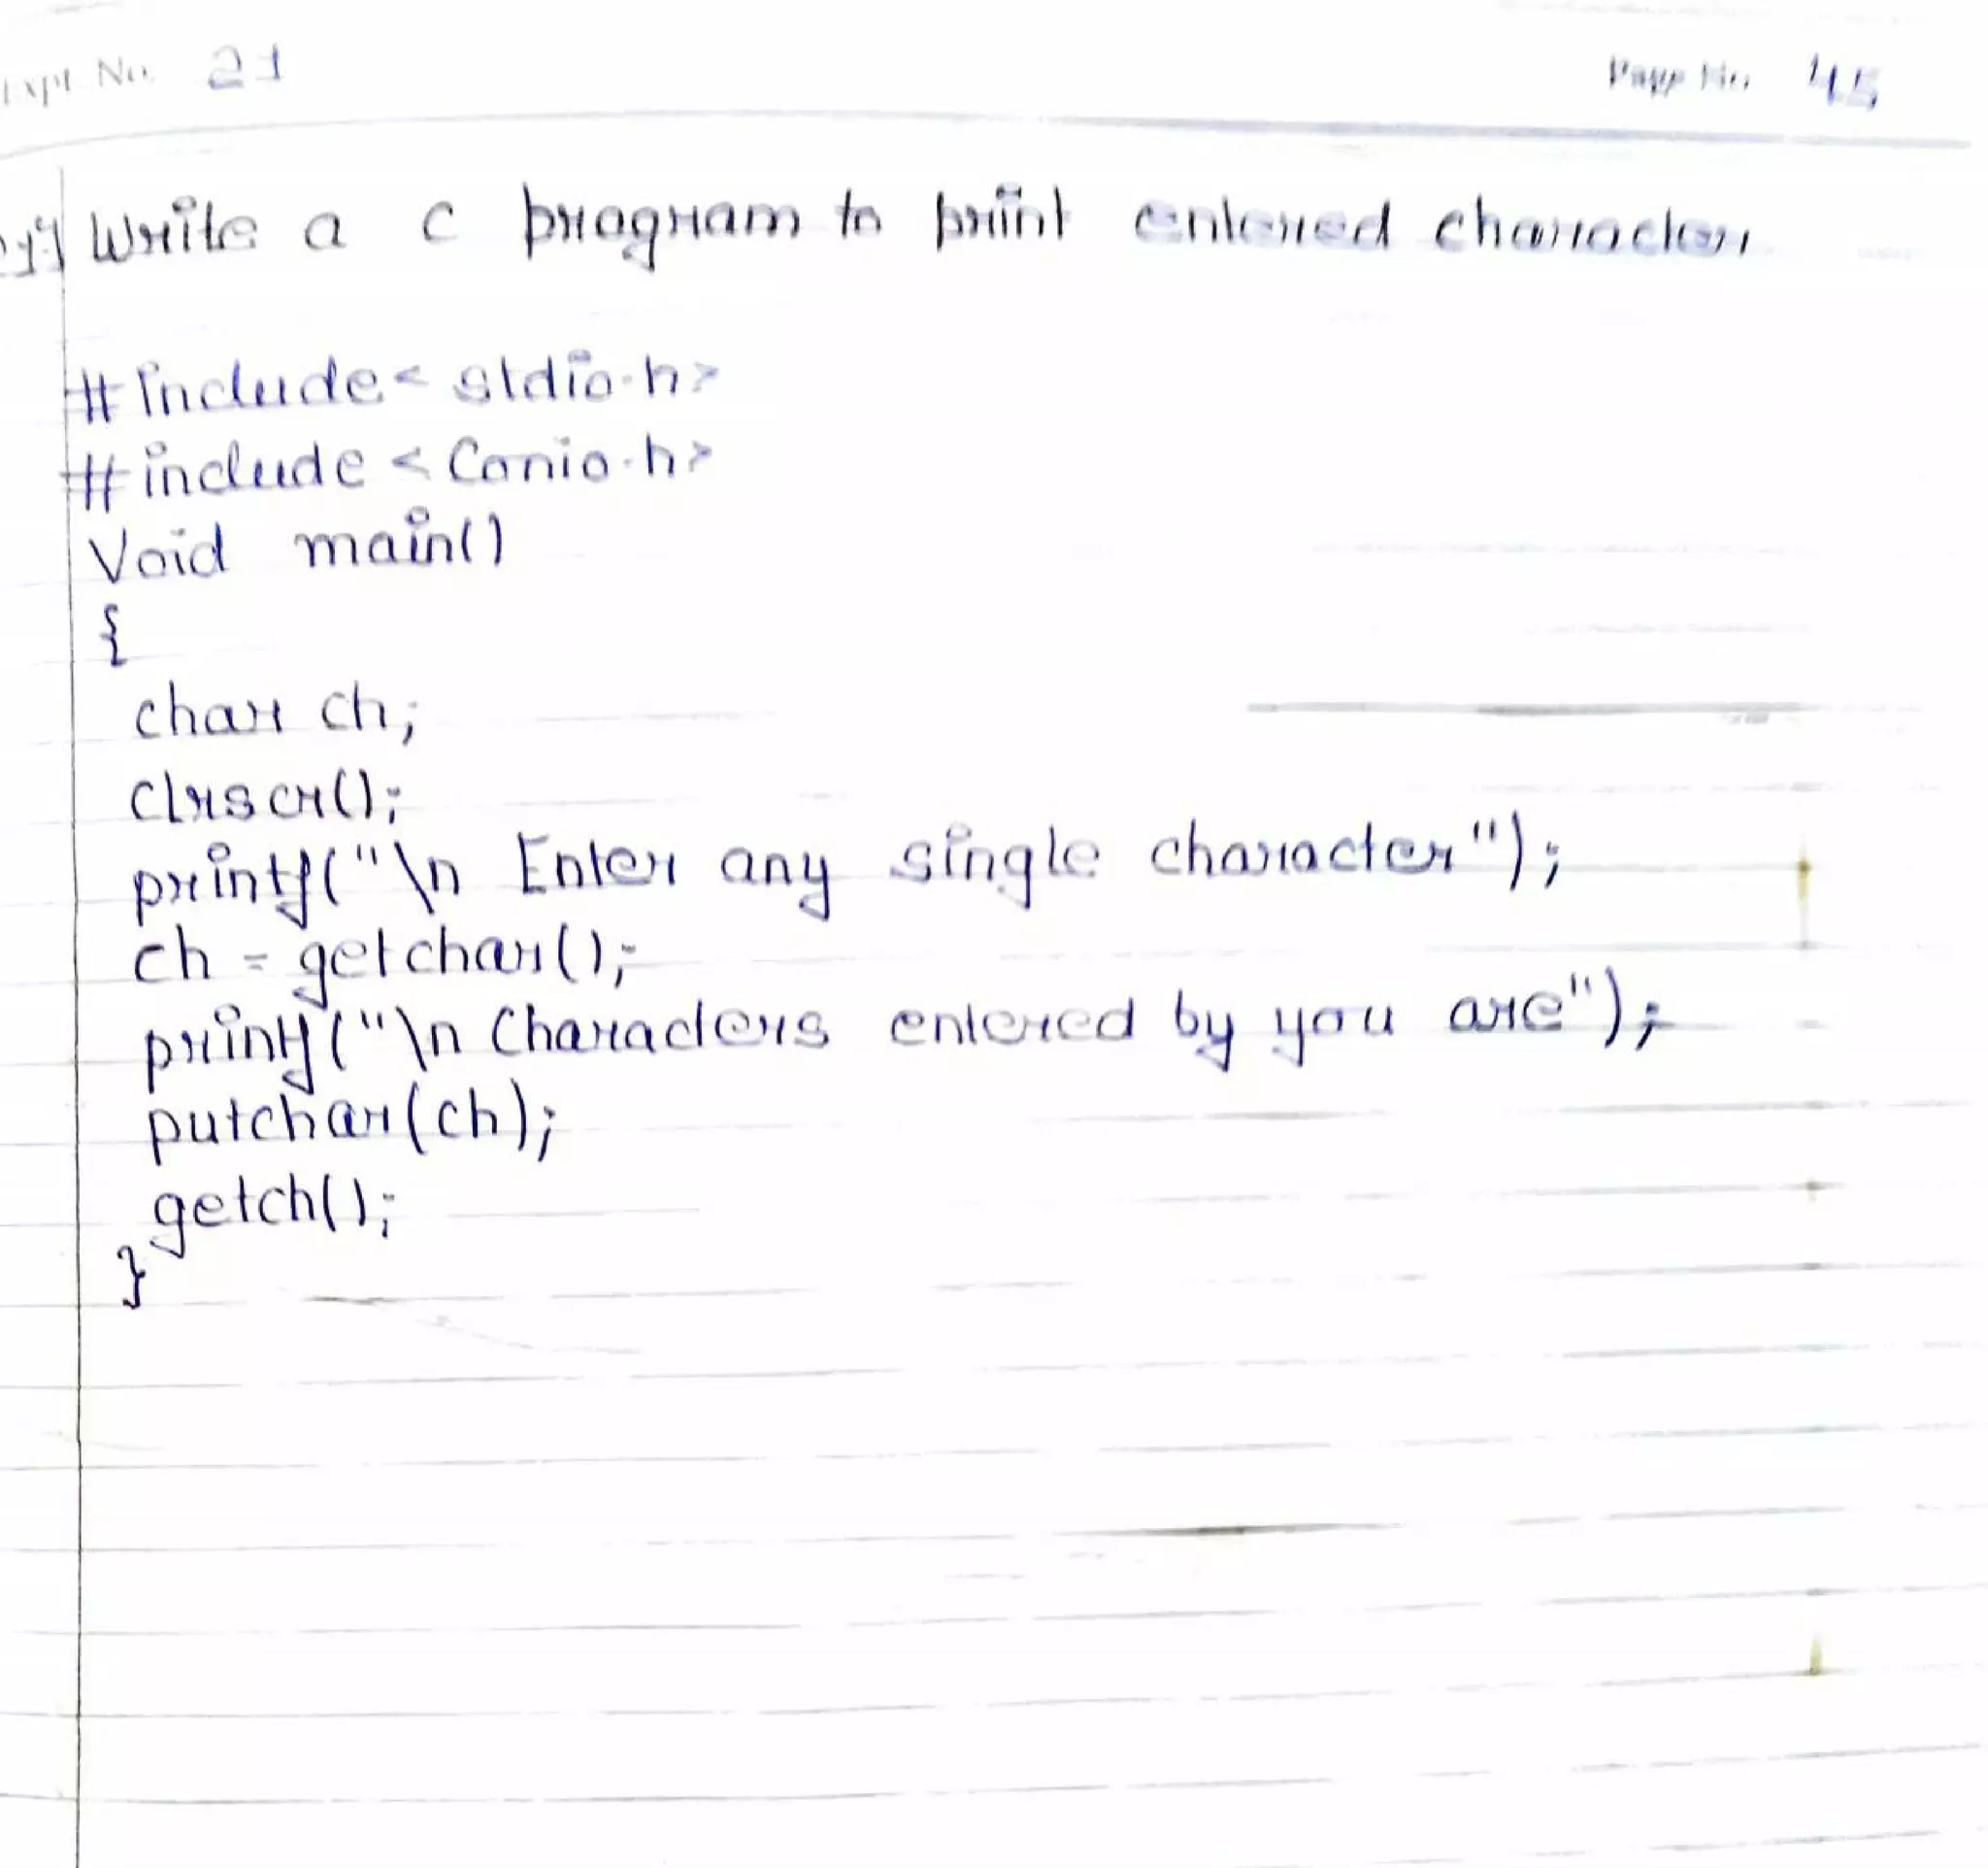 Expt. No. 21
Page No. 45
Write a c program to print entered character
#include< stdio.h>
#include < Conio.h>
Void main()
{
char ch;
clrscr();
printf("\n Enter any single character");
ch = getchar();
printf("\n Characters entered by you are");
putchar(ch);
getch();
}